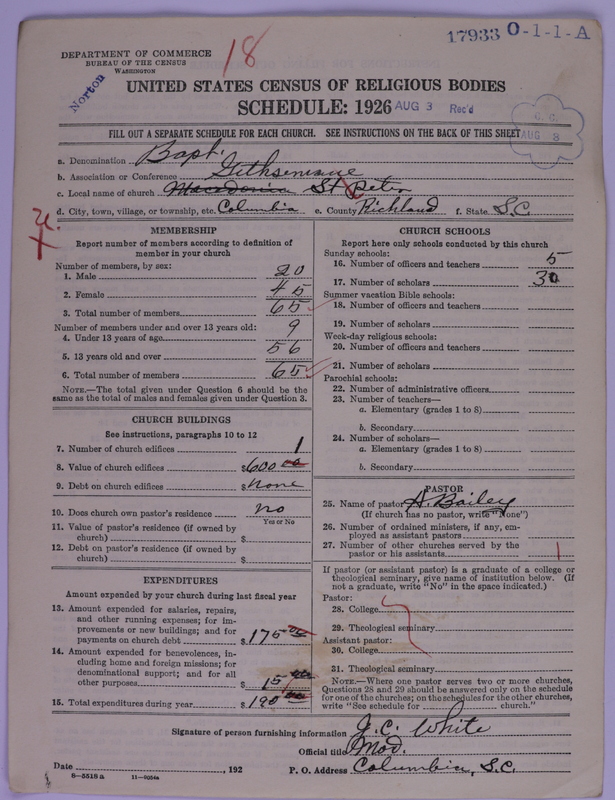 18
17933 O-1-1-A
DEPARTMENT OF COMMERCE
BUREAU OF THE CENSUS
WASHINGTON
Norton
UNITED STATES CENSUS OF RELIGIOUS BODIES
SCHEDULE: 1926 AUG 3 Rec'd
C. C.
AUG 3
FILL OUT A SEPARATE SCHEDULE FOR EACH CHURCH. SEE INSTRUCTIONS ON THE BACK OF THIS SHEET
a. Denomination Bapt.
b. Association or Conference Gethsemane
c. Local name of church Macedonia St Peter
d. City, town, village, or township, etc. Columbia e. County Richland f. State S.C.
MEMBERSHIP
Report number of members according to definition of
member in your church
Number of members, by sex:
1. Male 20
2. Female 45
3. Total number of members 65
Number of members under and over 13 years old:
4. Under 13 years of age 9
5. 13 years old and over 56
6. Total number of members 65
NOTE.—The total given under Question 6 should be the
same as the total of males and females given under Question 3.
CHURCH BUILDINGS
See instructions, paragraphs 10 to 12
7. Number of church edifices 1
8. Value of church edifices $600 00
9. Debt on church edifices $None
10. Does church own pastor's residence no
Yes or No
11. Value of pastor's residence (if owned by
church) $
12. Debt on pastor's residence (if owned by
church) $
EXPENDITURES
Amount expended by your church during last fiscal year
13. Amount expended for salaries, repairs,
and other running expenses; for im-
provements or new buildings; and for
payments on church debt $175 00
14. Amount expended for benevolences, in-
cluding home and foreign missions; for
denominational support; and for all
other purposes $15 00
15. Total expenditures during year $190 00
CHURCH SCHOOLS
Report here only schools conducted by this church
Sunday schools:
16. Number of officers and teachers 5
17. Number of scholars 30
Summer vacation Bible schools:
18. Number of officers and teachers
19. Number of scholars
Week-day religious schools:
20. Number of officers and teachers
21. Number of scholars
Parochial schools:
22. Number of administrative officers
23. Number of teachers—
a. Elementary (grades 1 to 8)
b. Secondary
24. Number of scholars—
a. Elementary (grades 1 to 8)
b. Secondary
PASTOR
25. Name of pastor A. Bailey
(If church has no pastor, write "None")
26. Number of ordained ministers, if any, em-
ployed as assistant pastors
27. Number of other churches served by the
pastor or his assistants 1
If pastor (or assistant pastor) is a graduate of a college or
theological seminary, give name of institution below. (If
not a graduate, write "No" in the space indicated.)
Pastor:
28. College
29. Theological seminary
Assistant pastor:
30. College
31. Theological seminary
NOTE.—Where one pastor serves two or more churches,
Questions 28 and 29 should be answered only on the schedule
for one of the churches; on the schedules for the other churches,
write "See schedule for church."
Signature of person furnishing information J.C. White
Official title Mod.
Date , 192 P. O. Address Columbia, S.C.
8-5518 a 11-9054a